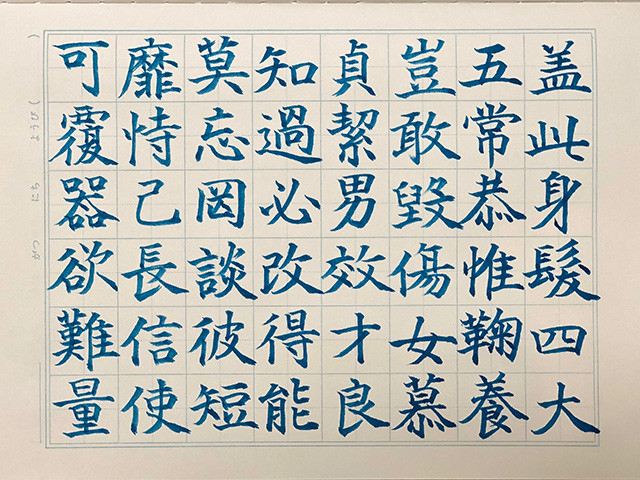 盖此身髮四大
五常恭惟鞠養
豈敢毀傷女慕
貞絜男效才良
知過必改得能
莫忘罔談彼短
靡恃己長信使
可覆器欲難量
がつ　にち　ようび（　）